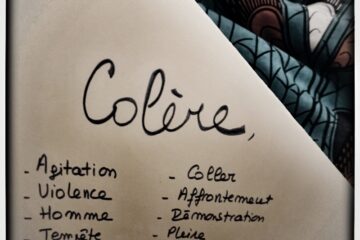 Colère,
- Agitation
- Violence
- Homme
- Tempête
- Coller
- Affrontement
- Démonstration
- Pleine